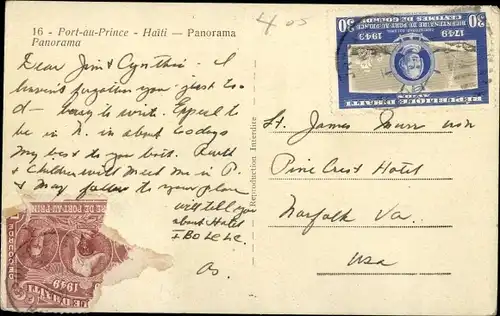 16 - Port-au-Prince - Haïti — Panorama
Panorama
4.05
Dear Jim & Cynthia: I
haven't forgotten you just too
d— busy to write. Expect to
be in N. in about 60 days
My best to you both. Ruth
& Children will meet me in P.
& May follow to your place
will tell you
about Hotel
IBO LeLe.
As.
Reproduction Interdite
Lt. James
Pine Crest Hotel
Norfolk Va.
USA
1749 1949
30 30
BICENTENAIRE DE PORT AU PRINCE
RE DE PORT-AU-PRIN
1949